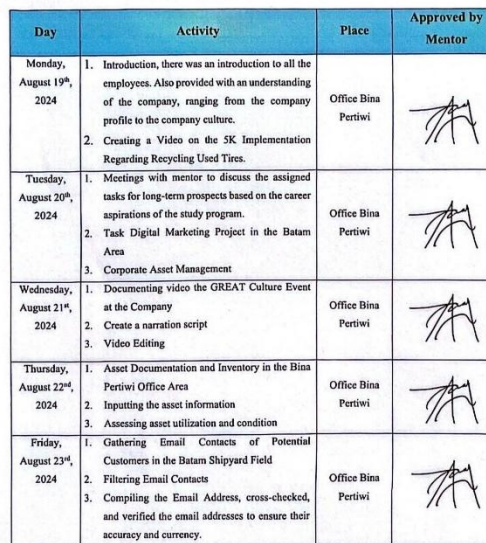 Day Activity Place Approved by Mentor
Monday, August 19th, 2024
1. Introduction, there was an introduction to all the
employees. Also provided with an understanding
of the company, ranging from the company
profile to the company culture.
2. Creating a Video on the 5K Implementation
Regarding Recycling Used Tires.
Office Bina
Pertiwi
Tuesday, August 20th, 2024
1. Meetings with mentor to discuss the assigned
tasks for long-term prospects based on the career
aspirations of the study program.
2. Task Digital Marketing Project in the Batam
Area
3. Corporate Asset Management
Office Bina
Pertiwi
Wednesday, August 21st, 2024
1. Documenting video the GREAT Culture Event
at the Company
2. Create a narration script
3. Video Editing
Office Bina
Pertiwi
Thursday, August 22nd, 2024
1. Asset Documentation and Inventory in the Bina
Pertiwi Office Area
2. Inputting the asset information
3. Assessing asset utilization and condition
Office Bina
Pertiwi
Friday, August 23rd, 2024
1. Gathering Email Contacts of Potential
Customers in the Batam Shipyard Field
2. Filtering Email Contacts
3. Compiling the Email Address, cross-checked,
and verified the email addresses to ensure their
accuracy and currency.
Office Bina
Pertiwi